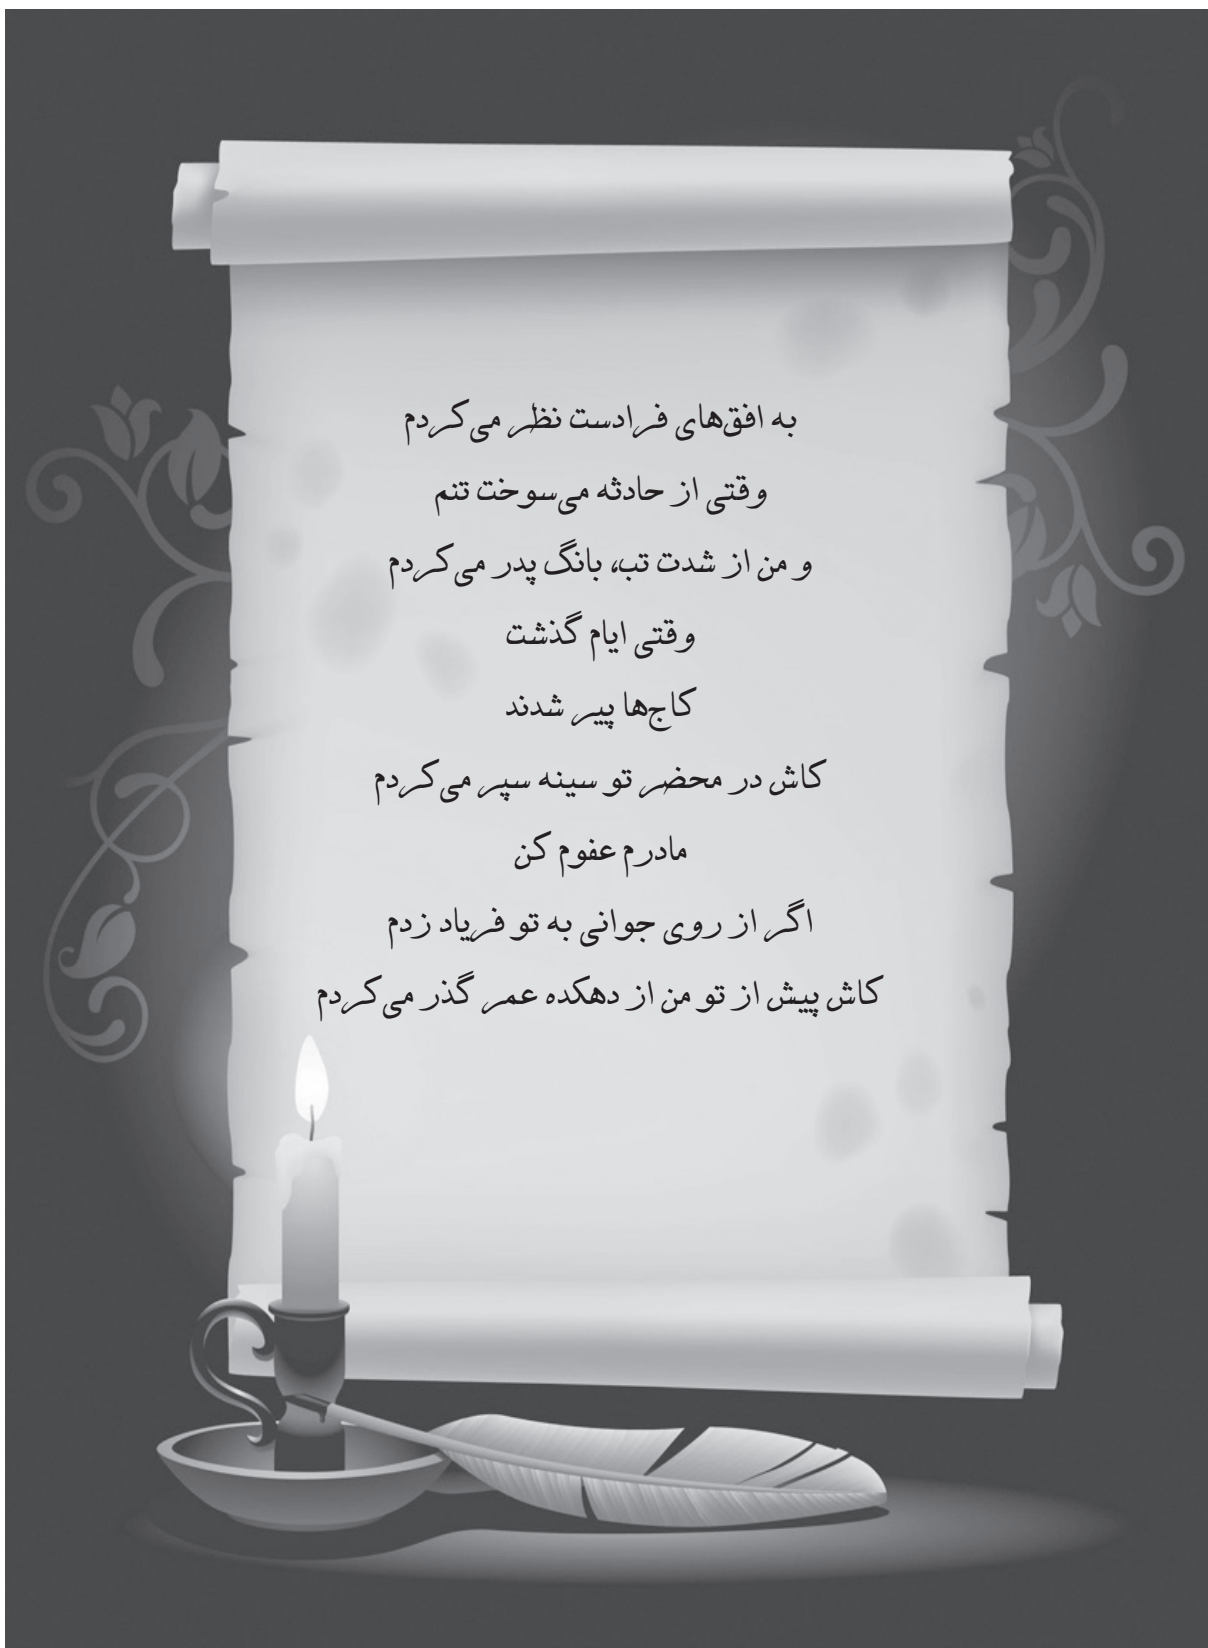 به افق‌های فرادست نظر می‌کردم
وقتی از حادثه می‌سوخت تنم
و من از شدت تب، بانگ پدر می‌کردم
وقتی ایام گذشت
کاج‌ها پیر شدند
کاش در محضر تو سینه سپر می‌کردم
مادرم عفوم کن
اگر از روی جوانی به تو فریاد زدم
کاش پیش از تو من از دهکده عمر گذر می‌کردم